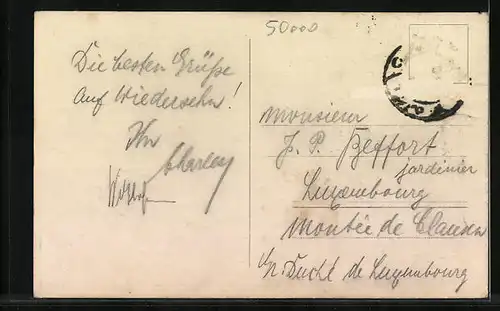 50000
Die besten Grüße
auf Wiedersehn!
Ihr
Charley
Monsieur
J. P. Beffort
jardinier
Luxembourg
Montée de Clausen
Duché de Luxembourg